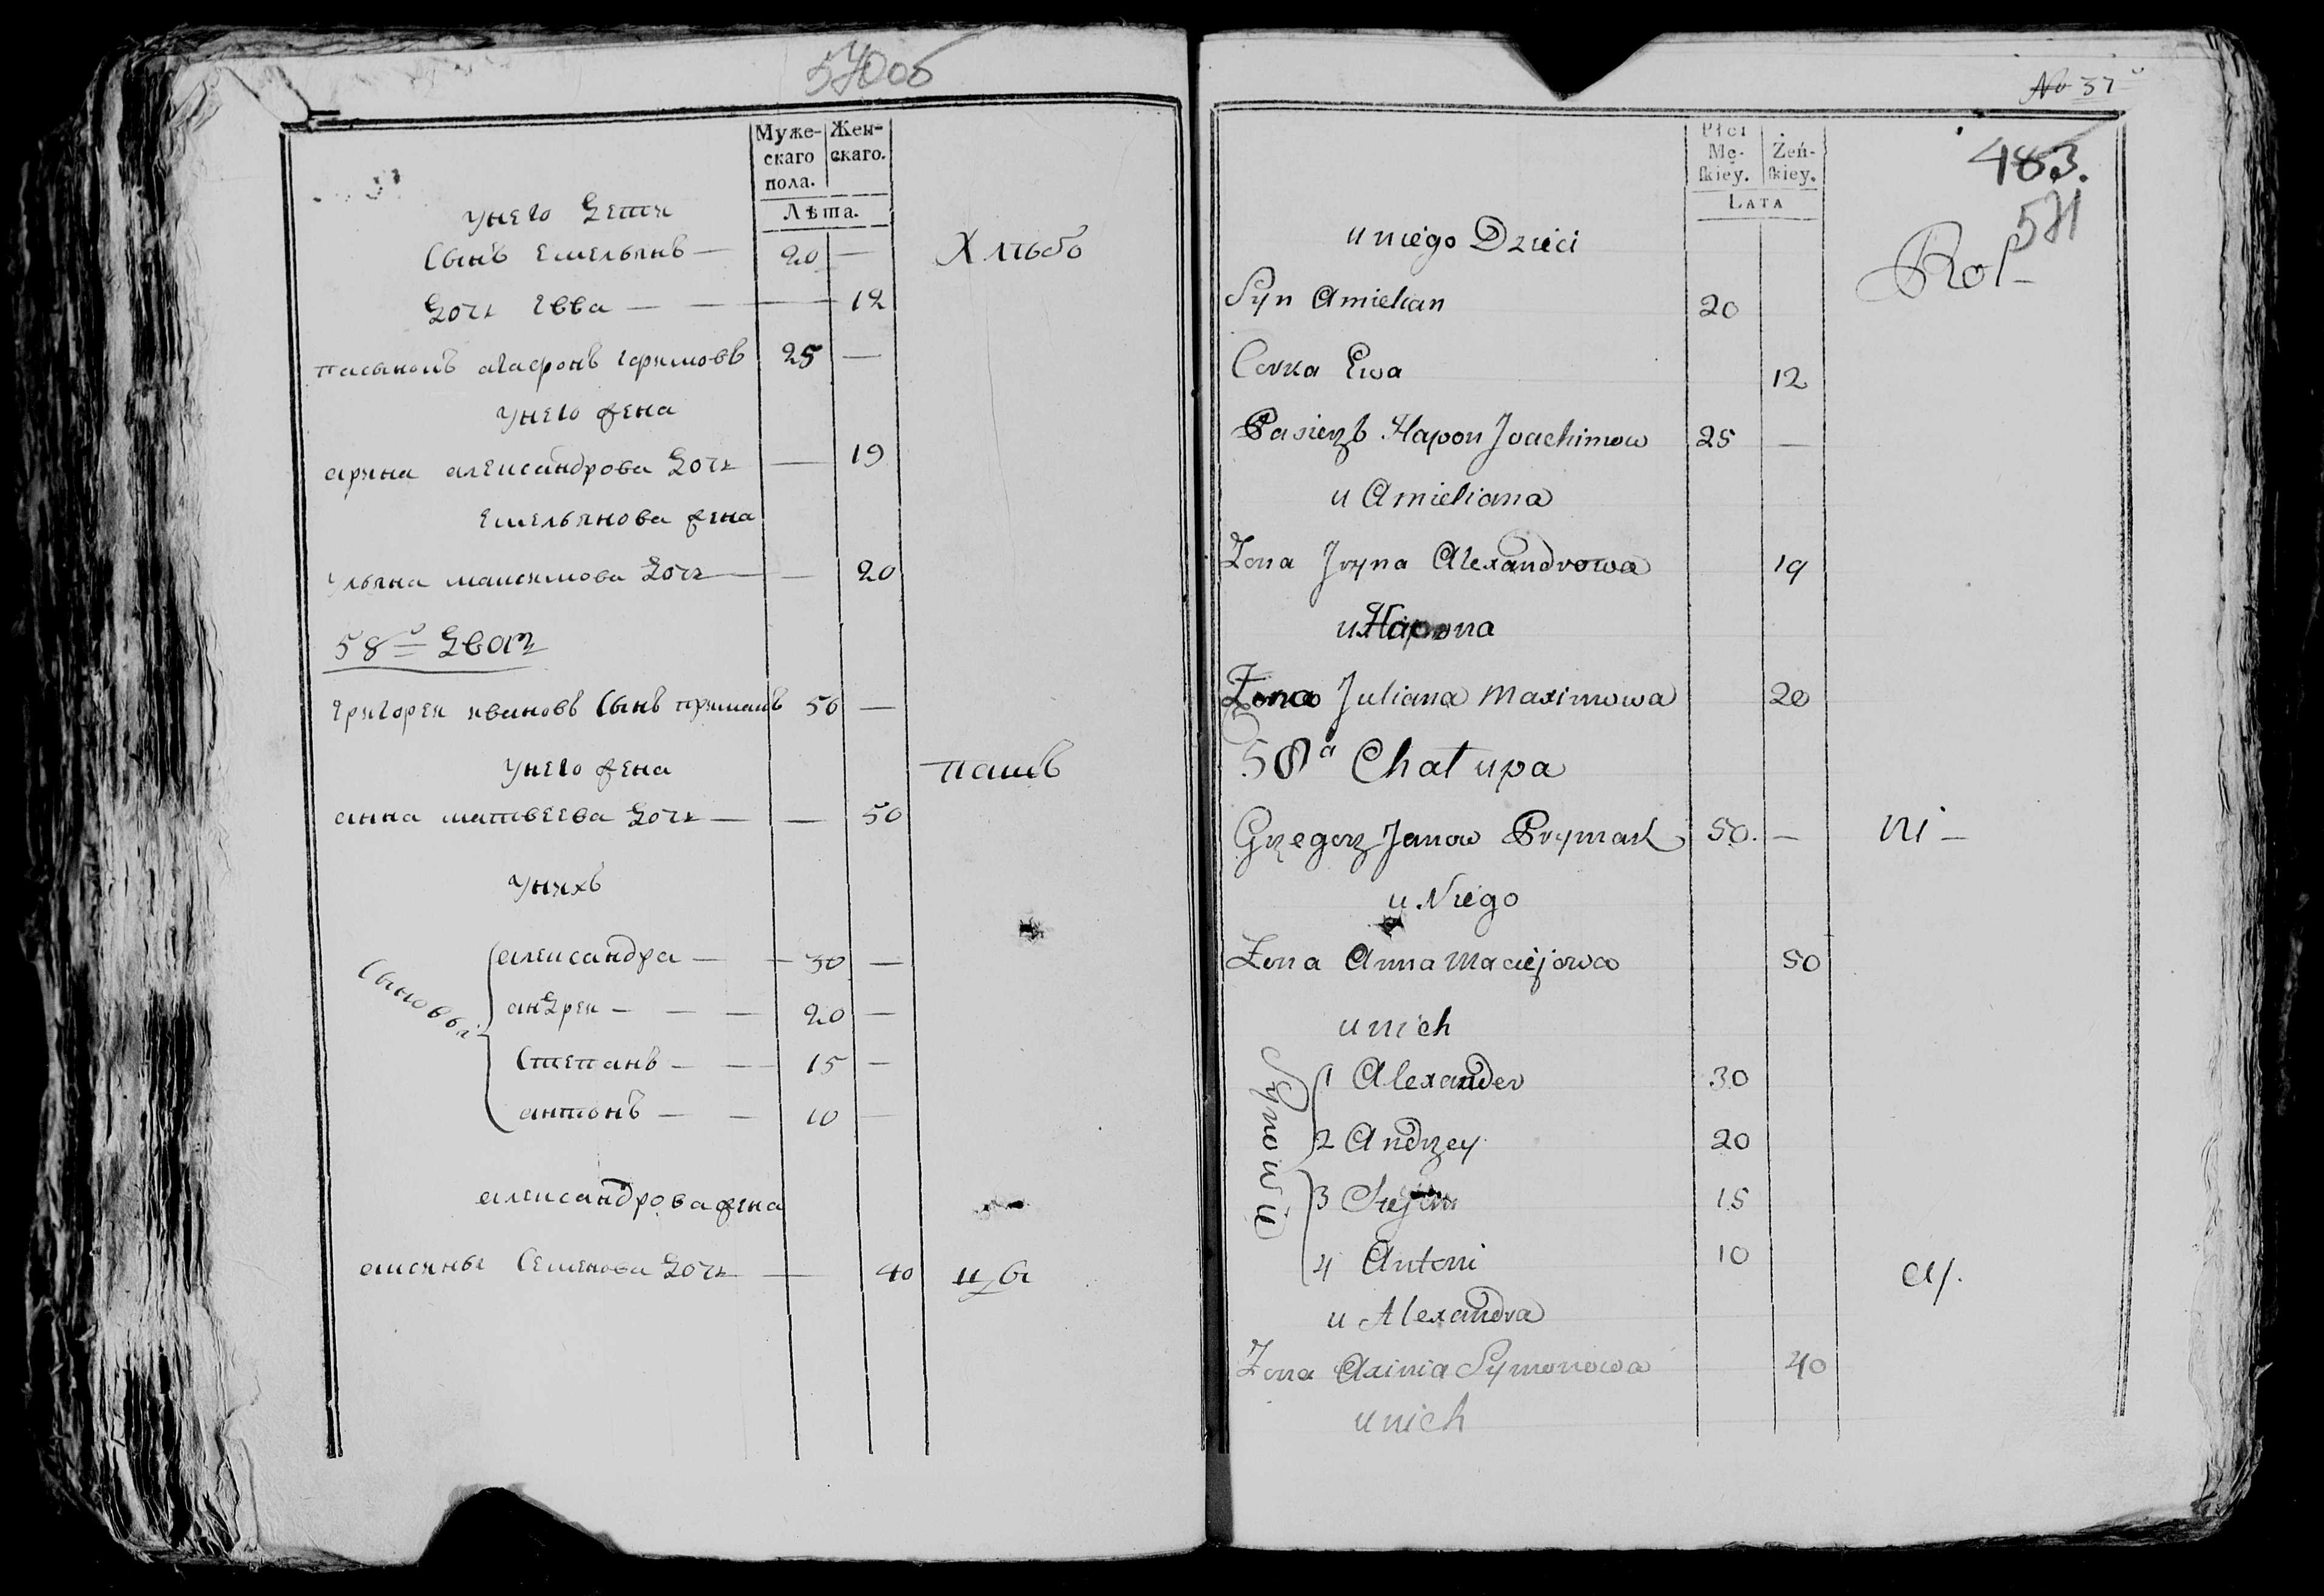 570об
Муже-
скаго
пола.
Жен-
скаго.
Лѣта.
унего дети
Сынъ Емельянъ — 20 —
Хлѣбо
дочь Евва — — — 12
пасынокъ агафонъ Ефимовъ 25 —
унего жена
арина александрова дочь — 19
Емельянова жена
ульяна максимова дочь — — 20
58й двор
Григореи ивановъ Сынъ примакъ 50 —
унего жена
пашъ
анна матвеева дочь — — 50
унихъ
Сыновья
александра — — 30 —
андреи — — — 20 —
Степанъ — — 15 —
антонъ — — 10 —
александрова жена
аксинья Семенова дочь — 40
No 37
483.
571
Płci
Mę-
ſkiey.
Żeń-
ſkiey.
LATA
u niego Dzieci
Rol-
Syn Amielian 20
Corka Ewa 12
Pasierzb Hapon Joachimow 25 —
u Amieliana
Zona Jryna Alexandrowa 19
u Hapona
Zona Juliana Maximowa 20
58a Chałupa
Grzegorz Janow Prymak 50. — ni —
u Niego
Zona Anna Maciejowa 50
u nich
Synowie
1 Alexander 30
2 Andrzey 20
3 Stefan 15
4 Antoni 10
cy.
u Alexandra
Zona Axinia Symonowa 40
u nich